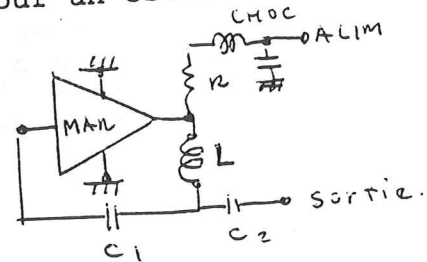 our un
CHOC
ALIM
R
MAR
L
Sortie.
C1
C2